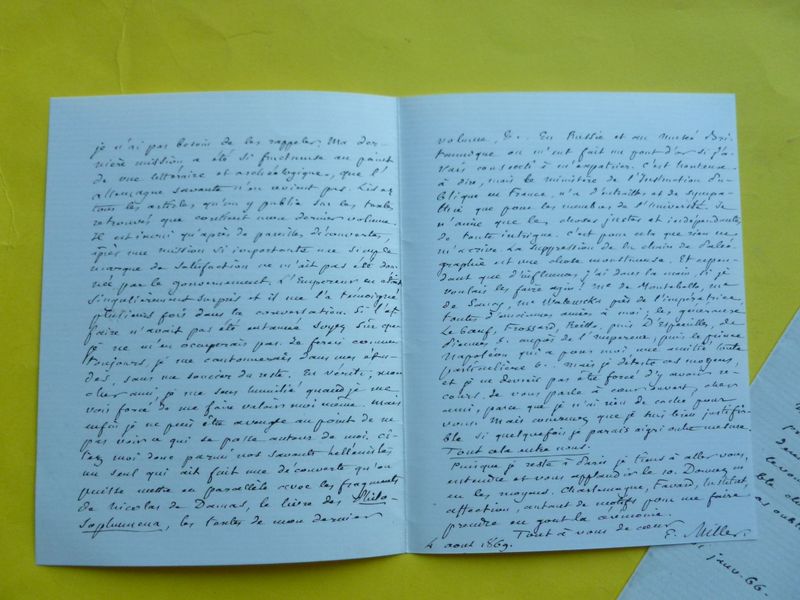 je n'ai pas besoin de les rappeler. Ma der-
nière mission a été si fructueuse au point
de vue littéraire et archéologique, que l'
allemagne savante n'en revient pas. Lisez
tous les articles qu'on y publie sur les
retrouvés que contient mon dernier volume.
Il est inouï qu'après de pareilles découvertes,
après une mission si importante une simple
marque de satisfaction ne m'ait pas été don-
née par le gouvernement. L'Empereur en était
singulièrement surpris et il me l'a témoigné
plusieurs fois dans la conversation. Si l'af-
faire n'avait pas été entamée soyez sûr que
je ne m'en occuperais pas. Je ferais comme
toujours, je me cantonnerais dans mes étu-
des, sans me soucier du reste. En vérité, mon
cher ami, je me sens humilié quand je me
vois forcé de me faire valoir moi même. Mais
enfin je ne puis être aveugle au point de ne
pas voir ce qui se passe autour de moi. Ci-
tez moi donc parmi nos savants hellénistes
un seul qui ait fait une découverte qu'on
puisse mettre en parallèle avec les fragments
de Nicolas de Damas, le livre des Philo-
sophumena, les textes de mon dernier
volume, &c. En Russie et au Musée Bri-
tannique on m'eut fait un pont d'or si j'a-
vais consenti à m'expatrier. C'est honteux
à dire, mais le ministère de l'Instruction Pu-
blique en France, n'a d'entrailles et de sympa-
thie que pour les membres de l'Université. Je
n'aime que les choses justes et indépendantes
de toute intrigue. C'est pour cela que rien ne
m'arrive. La suppression de la chaire de Paléo-
graphie est une chose monstrueuse. Et cepen-
dant que d'influences j'ai dans la main, si je
voulais les faire agir! Me de Montebello, me
de Saulcy, me Walewska près de l'impératrice,
toutes d'anciennes amies à moi; les généraux
Le Bœuf, Frossard, Reille, puis D'Espeuilles, de
&c. auprès de l'empereur, puis le prince
Napoléon qui a pour moi une amitié toute
particulière &c. Mais je déteste ces moyens,
et je ne devrais pas être forcé d'y avoir re-
cours. Je vous parle à cœur ouvert, cher
ami, parce que je n'ai rien de caché pour
vous. Mais convenez que je suis bien justifia-
ble si quelquefois je parais aigri outre mesure.
Tout cela entre nous.
Puisque je reste à Paris je tiens à aller vous
entendre et vous applaudir le 10. Donnez m'
en les moyens. Charlemagne, Favard, Institut,
affection, autant de motifs pour me faire
prendre en goût la cérémonie.
Tout à vous de cœur
E. Miller.
4 août 1869.
janv. 66.